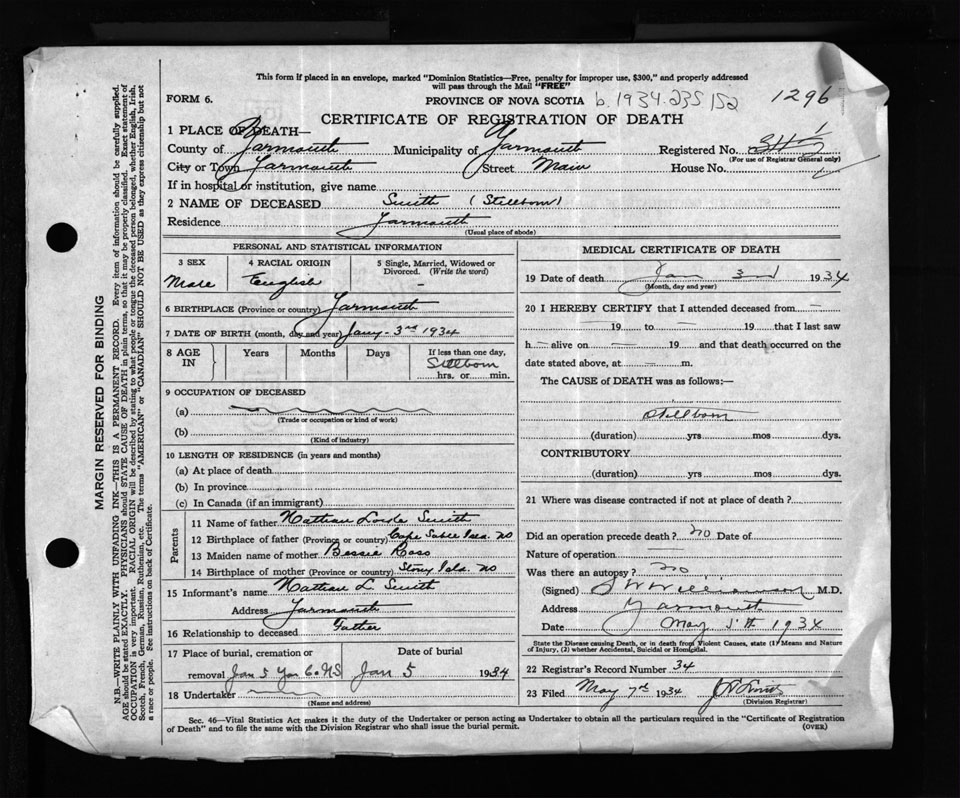 This form if placed in an envelope, marked "Dominion Statistics—Free, penalty for improper use, $300," and properly addressed
will pass through the Mail "FREE"
FORM 6.
PROVINCE OF NOVA SCOTIA b. 1934-235152 1296
CERTIFICATE OF REGISTRATION OF DEATH
1 PLACE OF DEATH—
County of Yarmouth Municipality of Yarmouth Registered No.
(For use of Registrar General only)
City or Town Yarmouth Street Main House No.
If in hospital or institution, give name
2 NAME OF DECEASED Smith (Stillborn)
Residence Yarmouth
(Usual place of abode)
PERSONAL AND STATISTICAL INFORMATION
3 SEX 4 RACIAL ORIGIN 5 Single, Married, Widowed or
Divorced. (Write the word)
Male English —
6 BIRTHPLACE (Province or country) Yarmouth
7 DATE OF BIRTH (month, day and year) Jany- 3rd 1934
8 AGE IN Years Months Days If less than one day,
Stillborn
hrs. or min.
9 OCCUPATION OF DECEASED
(a)
(Trade or occupation or kind of work)
(b)
(Kind of industry)
10 LENGTH OF RESIDENCE (in years and months)
(a) At place of death
(b) In province
(c) In Canada (if an immigrant)
Parents
11 Name of father Nathan Smith
12 Birthplace of father (Province or country) Cape Sable Isld. NS
13 Maiden name of mother Bessie Ross
14 Birthplace of mother (Province or country) Stony Isld. NS
15 Informant's name Nathan L. Smith
Address Yarmouth
16 Relationship to deceased Father
17 Place of burial, cremation or Date of burial
removal Jan 5 Yar Co. NS Jan 5 1934
18 Undertaker
(Name and address)
MEDICAL CERTIFICATE OF DEATH
19 Date of death Jan 3rd 1934
(Month, day and year)
20 I HEREBY CERTIFY that I attended deceased from —
19 to — 19 that I last saw
h — alive on — 19 and that death occurred on the
date stated above, at — m.
The CAUSE of DEATH was as follows:—
Stillborn
(duration) yrs mos dys.
CONTRIBUTORY
(duration) yrs mos dys.
21 Where was disease contracted if not at place of death?
Did an operation precede death? no Date of
Nature of operation —
Was there an autopsy? no
(Signed) Williamson M.D.
Address Yarmouth
Date May 5th 1934
State the Disease causing Death, or in death from Violent Causes, state (1) Means and Nature
of Injury, (2) whether Accidental, Suicidal or Homicidal.
22 Registrar's Record Number 34
23 Filed May 7th 1934
(Division Registrar)
Sec. 46—Vital Statistics Act makes it the duty of the Undertaker or person acting as Undertaker to obtain all the particulars required in the "Certificate of Registration
of Death" and to file the same with the Division Registrar who shall issue the burial permit. (OVER)
MARGIN RESERVED FOR BINDING
N.B.—WRITE PLAINLY WITH UNFADING INK—THIS IS A PERMANENT RECORD. Every item of information should be carefully supplied.
AGE should be stated EXACTLY. PHYSICIANS should STATE CAUSE OF DEATH in plain terms, so that it may be properly classified. Exact statement of
OCCUPATION is very important. RACIAL ORIGIN will be described by stating to what people or tongue the deceased person belonged, whether English, Irish,
Scotch, French, German, Russian, Ruthenian, etc. The terms "AMERICAN" or "CANADIAN" SHOULD NOT BE USED as they express citizenship but not
a race or people. See instructions on back of Certificate.